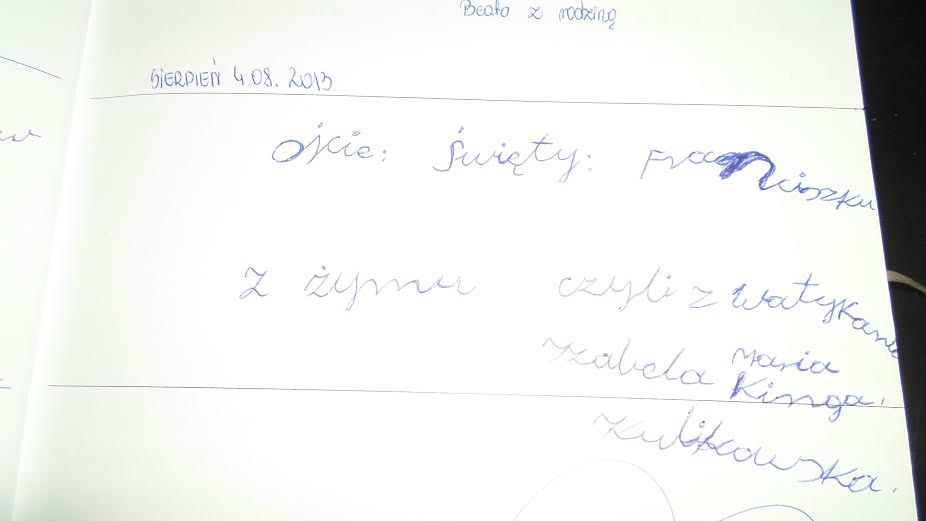 Beata z rodziną
SIERPIEŃ 4.08.2013
ojcie: święty: Franciszku
z żymu czyli z watykanu
Izabela Maria
Kinga.
Kulikowska.